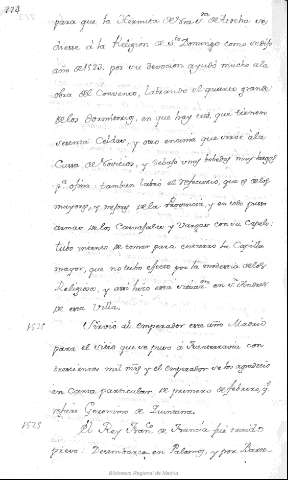 224
para que la Hermita de Ntra Sra de Atocha se
diesse á la Religion de Sto Domingo como se dijo
año de 1523. por su devocion ayudó mucho á la
obra del Convento, labrando el quarto grande
de los Dormitorios, en que hay que tienen
sesenta Celdas, y otro encima que sirve á la
Cassa de Novicios, y debajo unas bobedas muy largas
tambien labró el refectorio, que es de los
mayores, y mejores de la Provincia, y en esto puso
armas de los Carvajales y Vargas con su Capelo:
tubo intento de tomar para entierro la Capilla
mayor, que no tubo efecto por la modestia de los
Religiosos, y assi hizo esta en S. Andres
de esta Villa.
1525 Sirvio al Emperador este año Madrid
para el Sitio que se puso á Fuenterravia con
trescientos mil mrs y el Emperador se los agradecio
en Carta particular de primero de febrero q.
refiere Geronimo de Quintana.
1525 El Rey Franco de Francia fue trahido
preso. Desembarco en Palamos, y por Barce-
Biblioteca Regional de Madrid